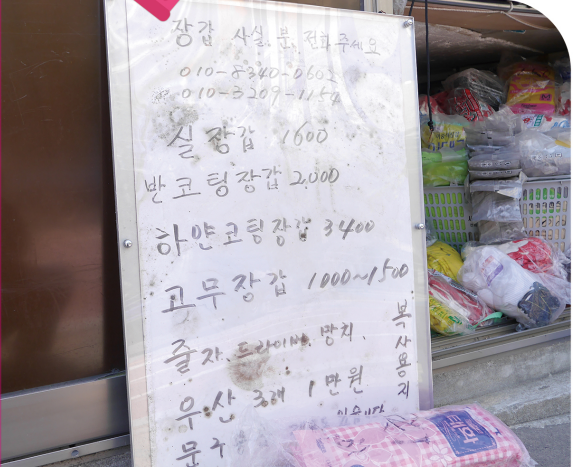 장갑 사실 분 전화주세요
010-8340-0602
010-3209-1154
실장갑 1600
반코팅장갑 2,000
하얀코팅장갑 3400
고무장갑 1000~1500
줄자. 드라이버. 망치.
복사용지
우산 3개 1만원
있습니다
문구